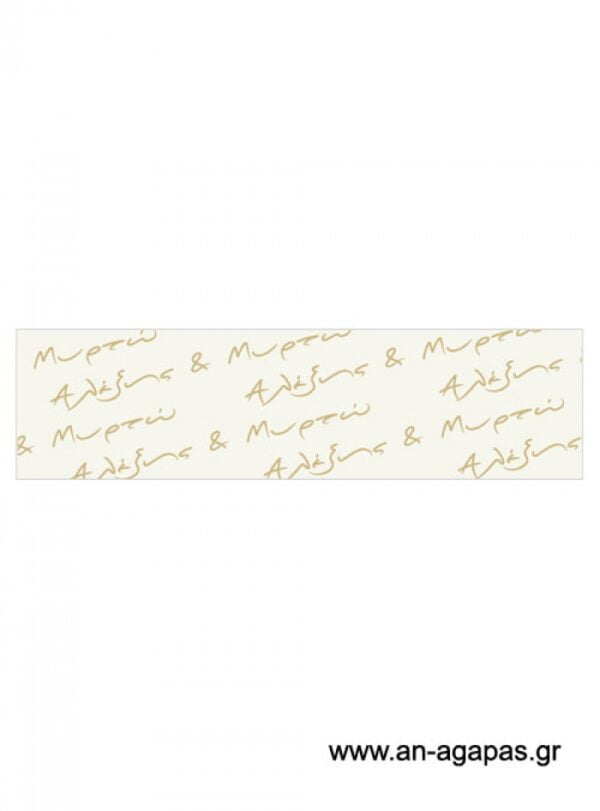 Μυρτώ & Μυρτώ & Μυρτώ
Αλέξης & Αλέξης & Αλέξης
& Μυρτώ & Μυρτώ & Μυρτώ
Αλέξης Αλέξης Αλέξης
www.an-agapas.gr